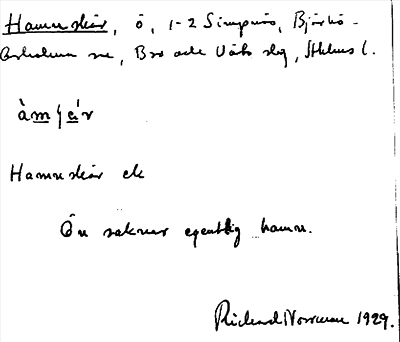 Hamnskär, ö, 1-2 Simpnäs, Björkö-
Arholma sn, Bro och Vätö skg, Sthlms l.
àmʃæ̀r
Hamnskär ek
Ön saknar egentlig hamn.
Rickard Norrman 1929.